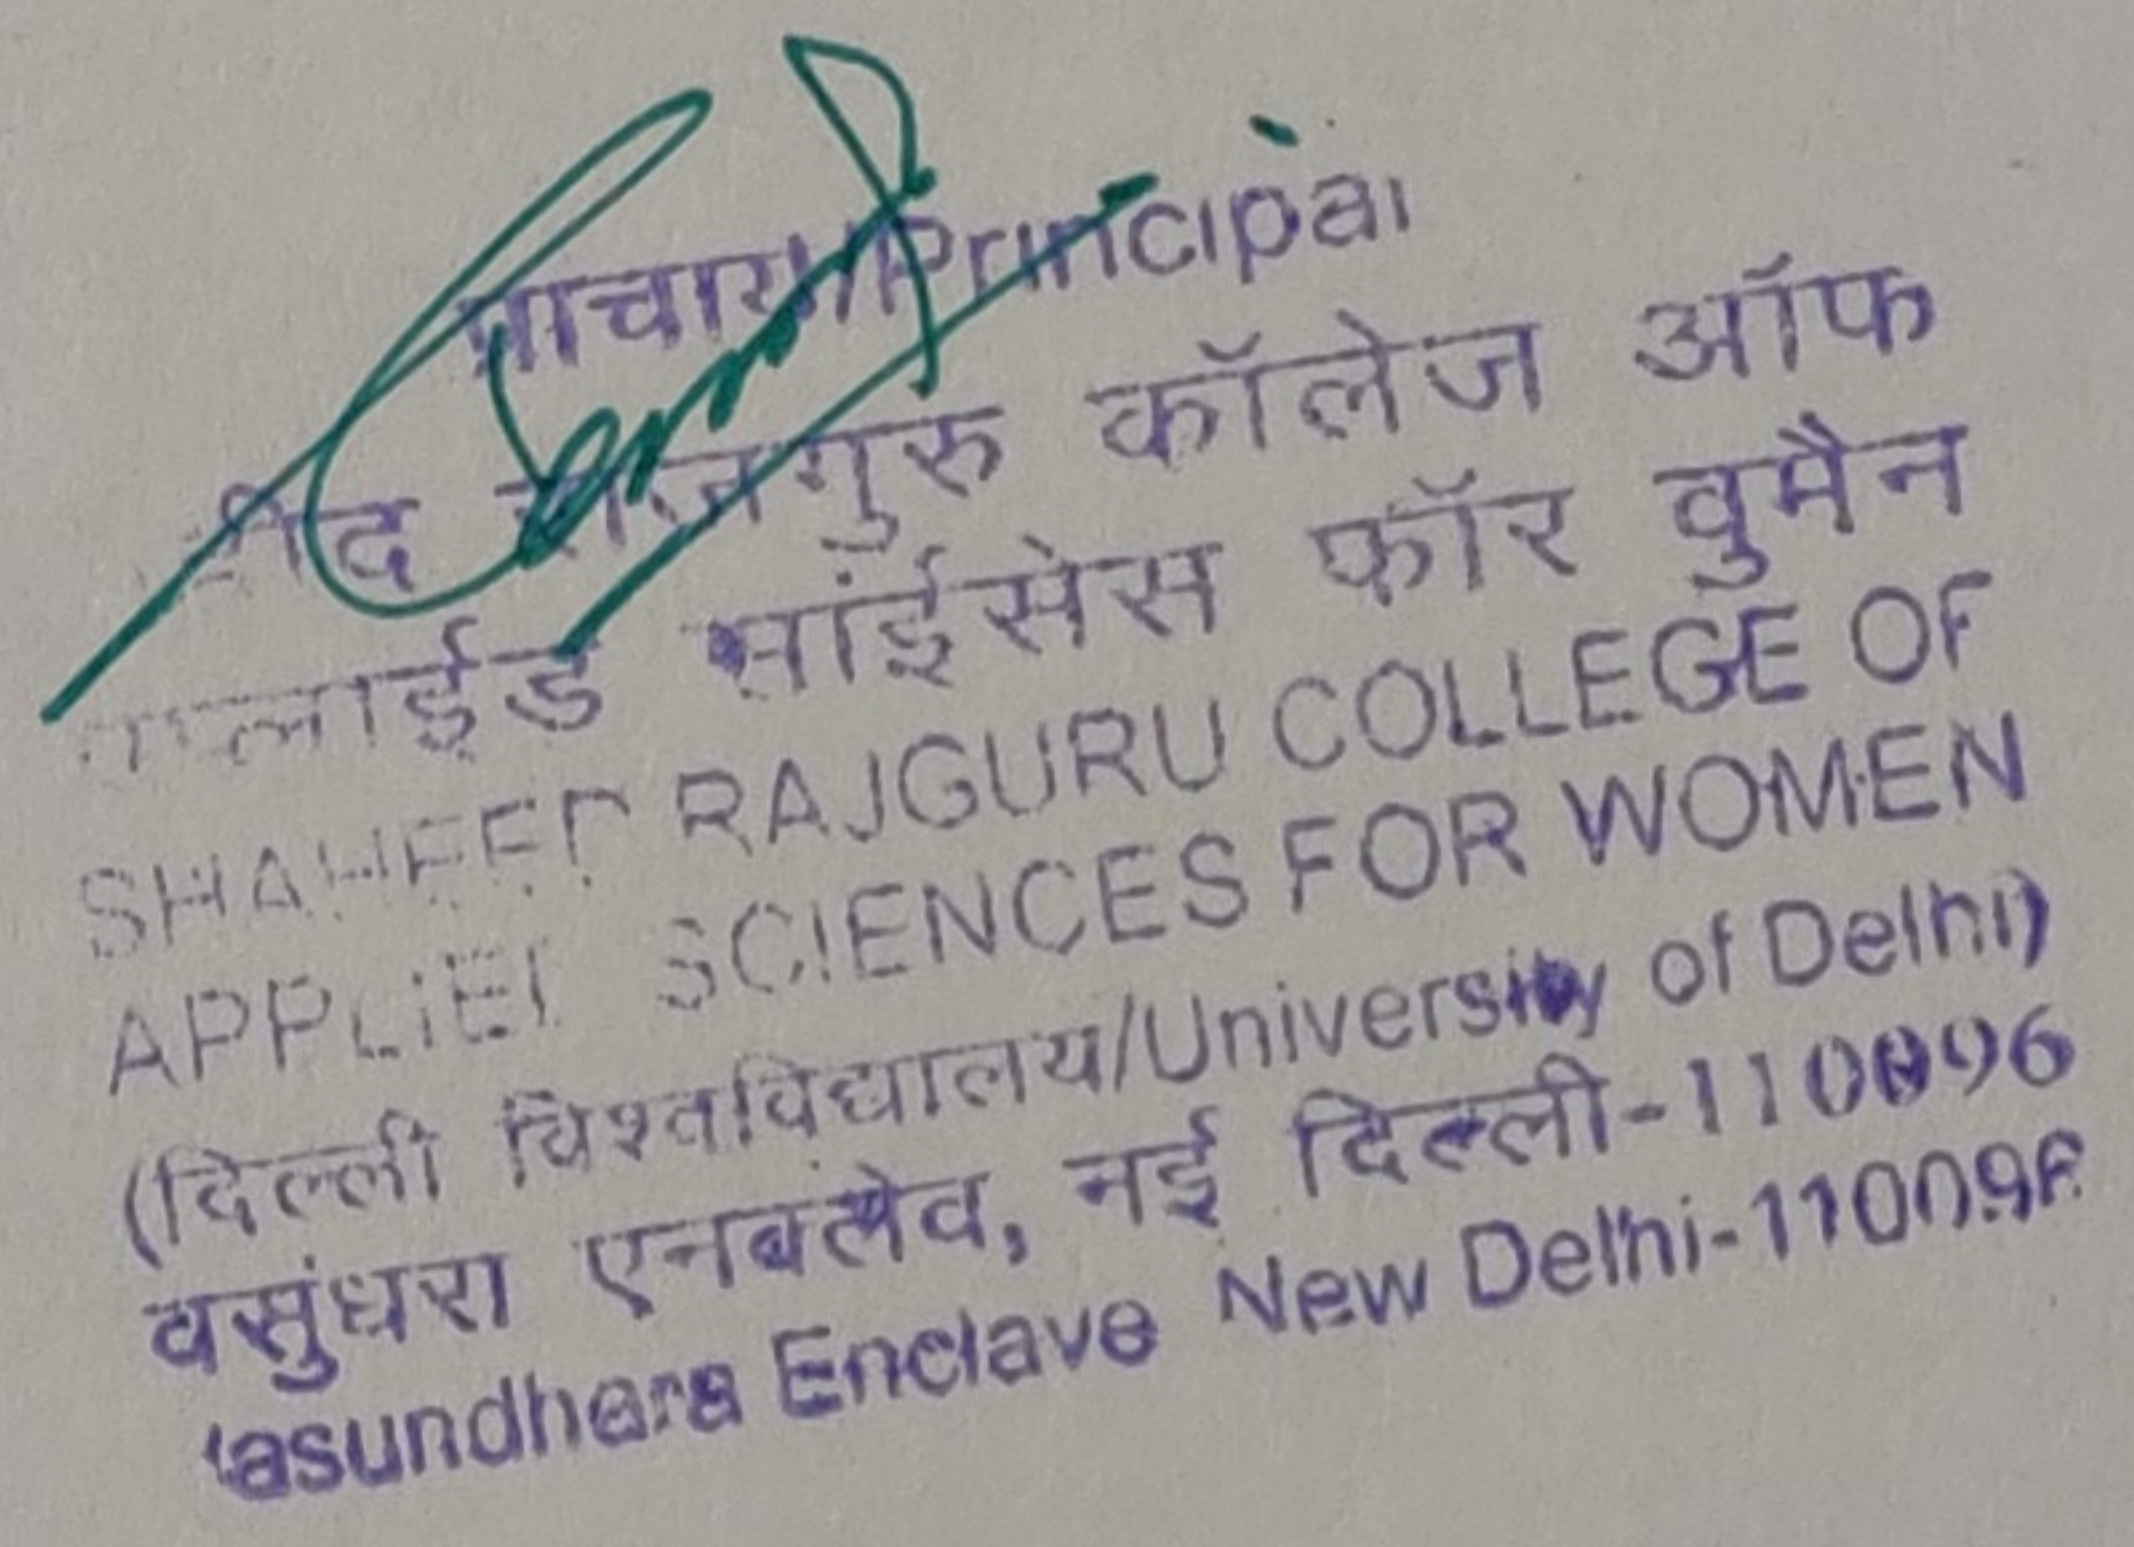 प्राचार्य/Principal
शहीद राजगुरु कॉलेज ऑफ
एप्लाईड सांईसेस फॉर वुमैन
SHAHEED RAJGURU COLLEGE OF
APPLIED SCIENCES FOR WOMEN
(दिल्ली विश्वविद्यालय/University of Delhi)
वसुंधरा एनक्लेव, नई दिल्ली-110096
Vasundhara Enclave New Delhi-110096